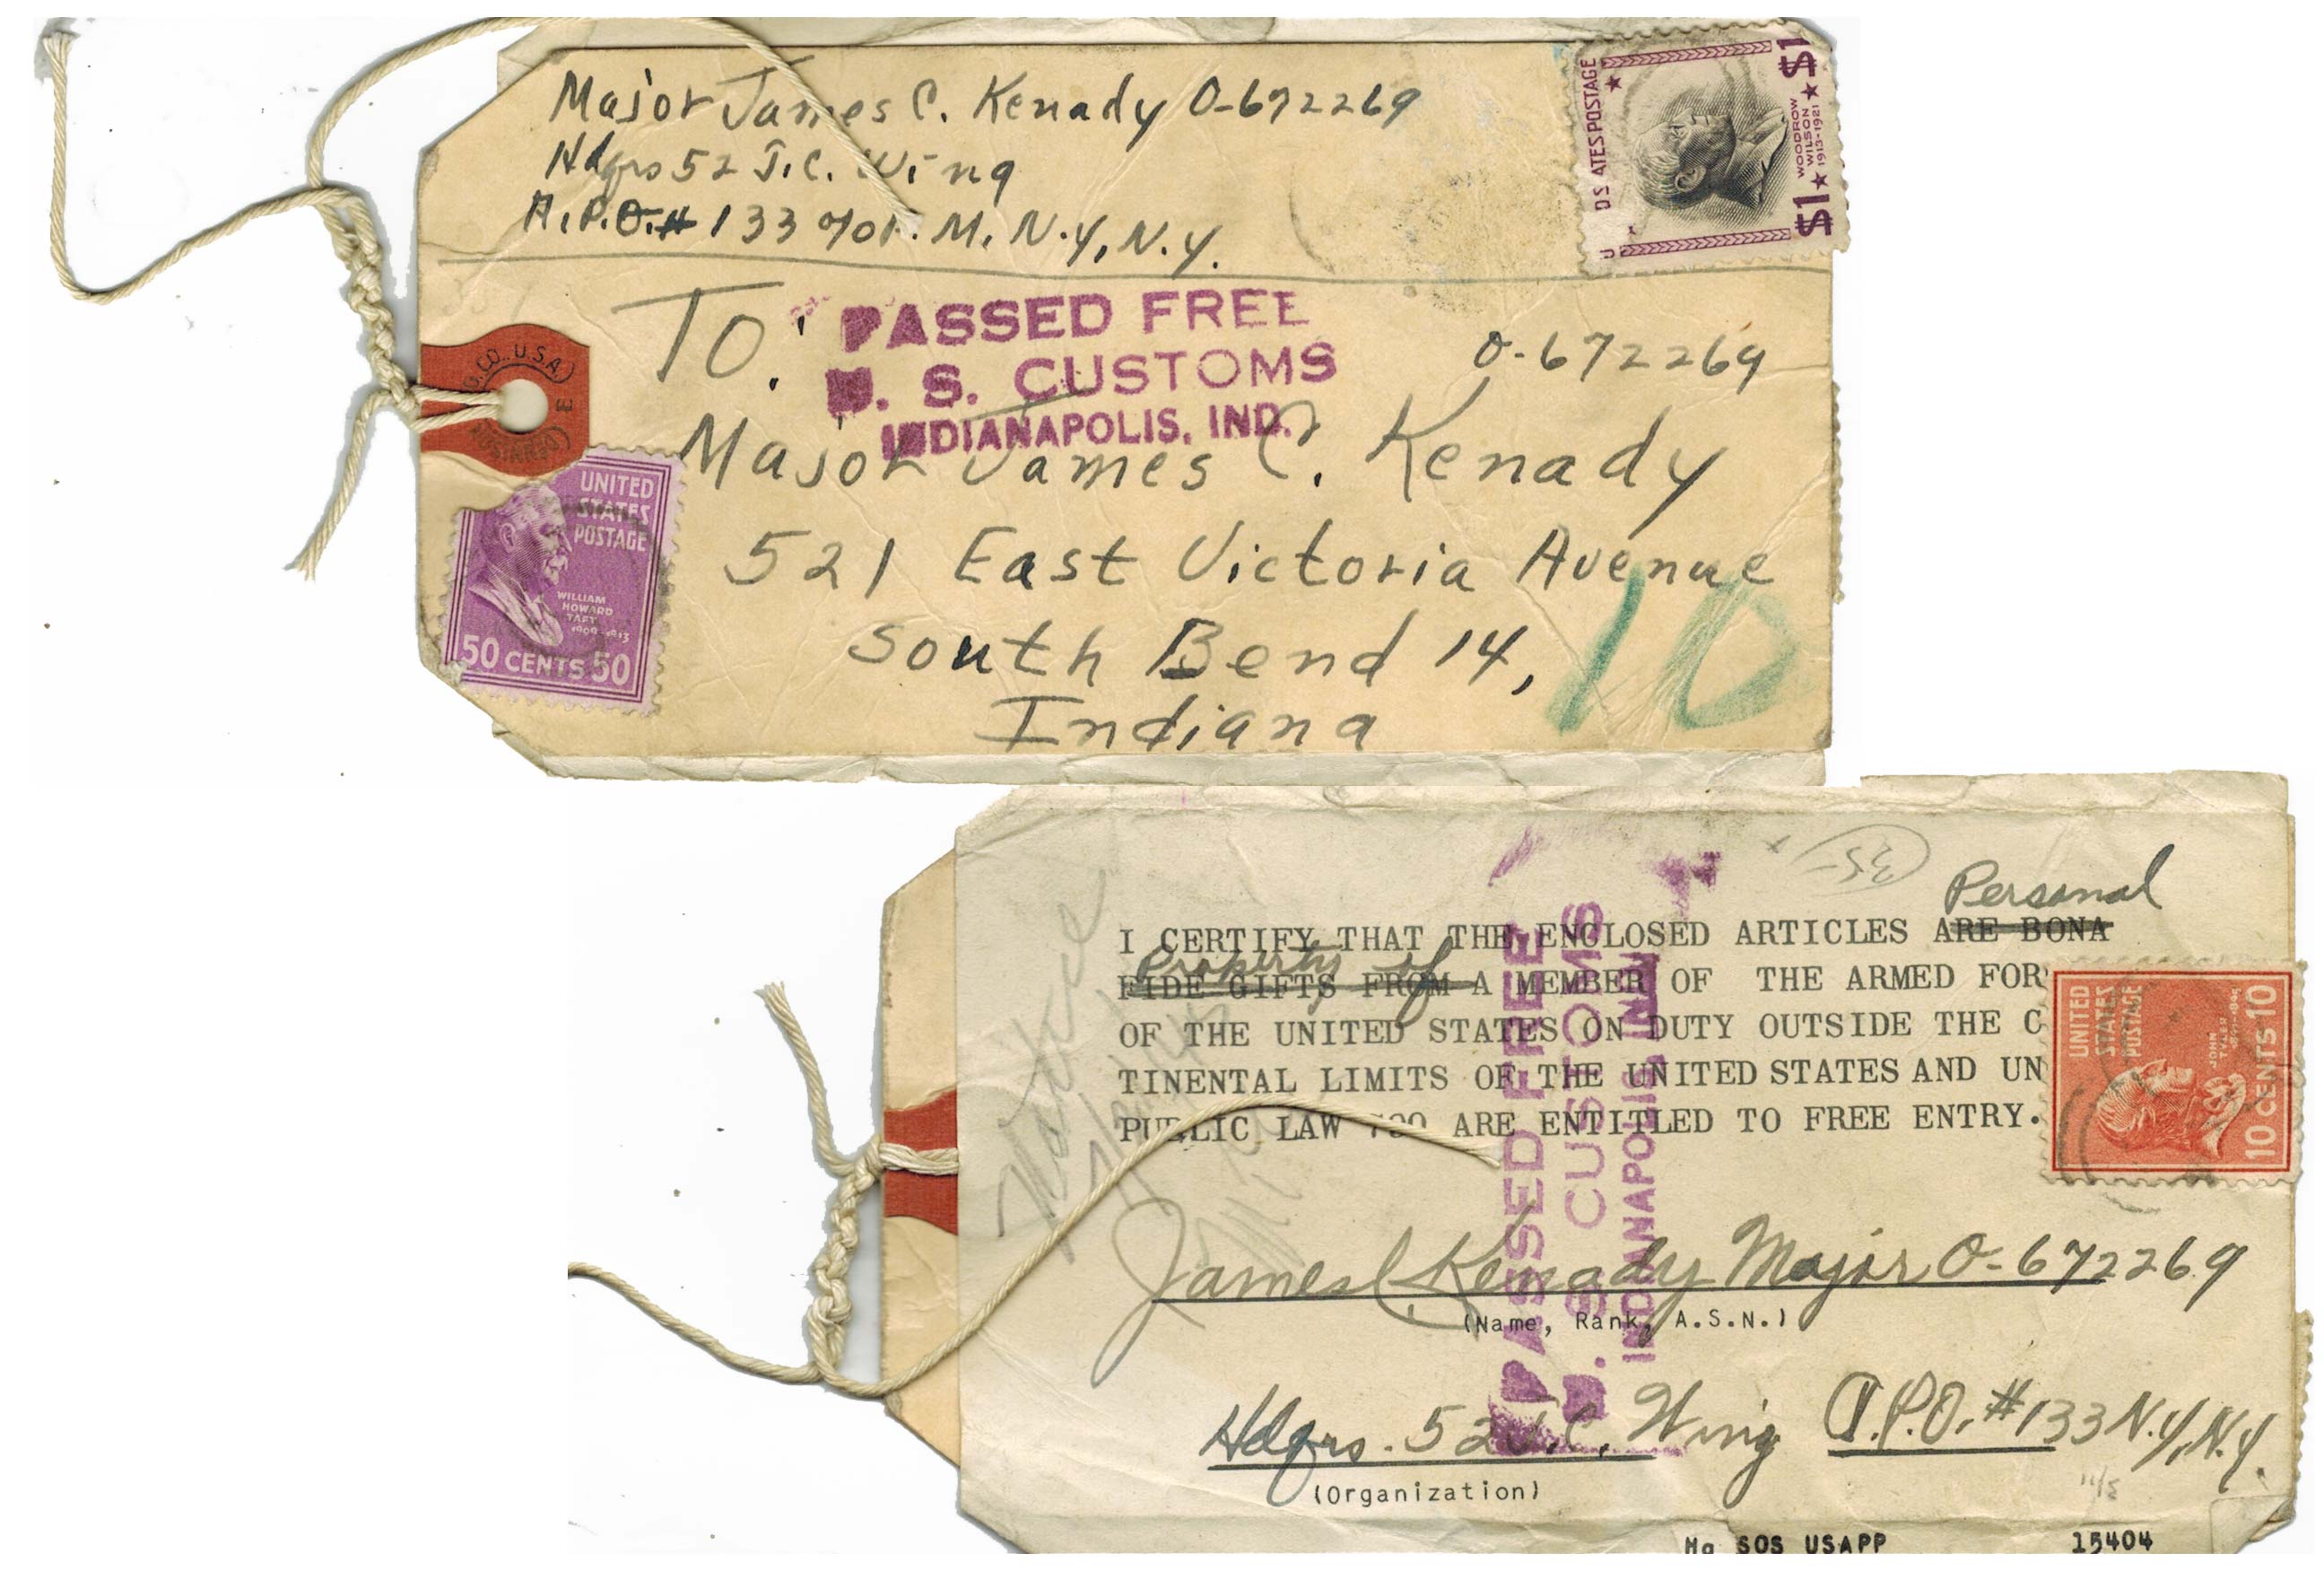 Major James C. Kenady O-672269
Hdqrs 52 T.C. Wing
A.P.O. # 133 % P.M. N.Y, N.Y.
U.S. POSTAGE
$1 ★ WOODROW WILSON 1913-1921 ★ $1
To:
PASSED FREE
U. S. CUSTOMS
INDIANAPOLIS, IND.
O-672269
CO., U.S.A.
Major James C. Kenady
521 East Victoria Avenue
South Bend 14,
Indiana
10
UNITED
STATES
POSTAGE
WILLIAM
HOWARD
TAFT
1909-1913
50 CENTS 50
35-
Personal
I CERTIFY THAT THE ENCLOSED ARTICLES ARE BONA
Property of
FIDE GIFTS FROM A MEMBER OF THE ARMED FOR
OF THE UNITED STATES ON DUTY OUTSIDE THE C
TINENTAL LIMITS OF THE UNITED STATES AND UN
PUBLIC LAW ARE ENTITLED TO FREE ENTRY.
UNITED
STATES
POSTAGE
JOHN
TYLER
10 CENTS 10
PASSED FREE
U. S. CUSTOMS
INDIANAPOLIS, IND.
James C. Kenady Major O-672269
(Name, Rank, A.S.N.)
Hdqrs. 52 T.C. Wing A.P.O. #133 N.Y, N.Y.
(Organization)
Hq SOS USAPP 15404